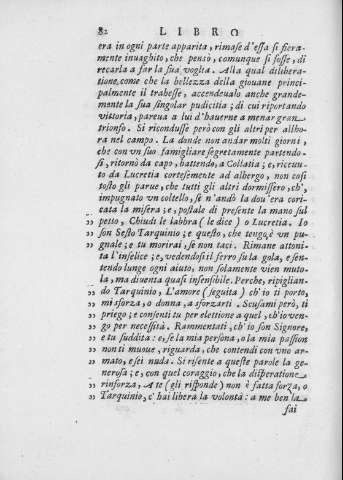 82 LIBRO
era in ogni parte apparita, rimase d'essa si fiera-
mente inuaghito, che pensò, comunque si fosse, di
recarla a far la sua voglia. Alla qual dilibera-
tione, come che la bellezza della giouane princi-
palmente il trahesse, accendeualo anche grande-
mente la sua singolar pudicitia; di cui riportando
vittoria, pareua a lui d'hauerne a menar gran
trionfo. Si ricondusse però con gli altri per allho-
ra nel campo. La donde non andar molti giorni,
che con vn suo famigliare segretamente partendo-
si, ritornò da capo, battendo, a Collatia; e, riceuu-
to da Lucretia cortesemente ad albergo, non così
tosto gli parue, che tutti gli altri dormissero, ch',
impugnato vn coltello, se n'andò la dou'era cori-
cata la misera; e, postale di presente la mano sul
petto, Chiudi le labbra (le dice) o Lucretia. Io
„ son Sesto Tarquinio; e questo, che tengo, è vn pu-
„ gnale; e tu morirai, se non taci. Rimane attoni-
ta l'infelice; e, vedendosi il ferro su la gola, e sen-
tendo lunge ogni aiuto, non solamente vien muto-
la, ma diuenta quasi insensibile. Perche, ripiglian-
„ do Tarquinio, L'amore (seguita) ch'io ti porto,
„ mi sforza, o donna, a sforzarti. Scusami però, ti
„ priego; e consenti tu per elettione a quel, ch'io ven-
„ go per necessità. Rammentati, ch'io son Signore,
„ e tu suddita: e, se la mia persona, o la mia passion
„ non ti muoue, riguarda, che contendi con vno ar-
„ mato, e sei nuda. Si risente a queste parole la ge-
nerosa; e, con quel coraggio, che la disperatione
„ rinforza, A te (gli risponde) non è fatta forza, o
„ Tarquinio, c'hai libera la volontà: a me ben la
fai